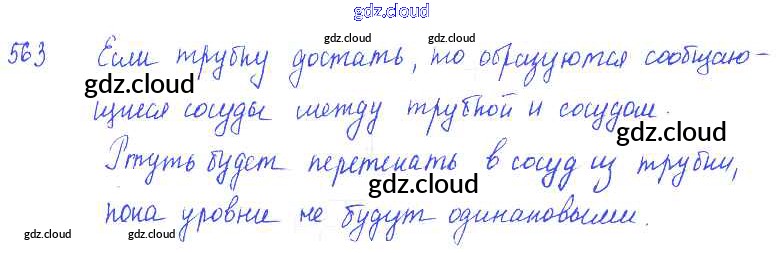 gdz.cloud
563 Если трубку достать, то образуются сообщаю-
gdz.cloud gdz.cloud
gdz.cloud
щиеся сосуды между трубкой и сосудом.
gdz.cloud
Ртуть будет перетекать в сосуд из трубки,
gdz.cloud
пока уровни не будут одинаковыми.
gdz.cloud gdz.cloud